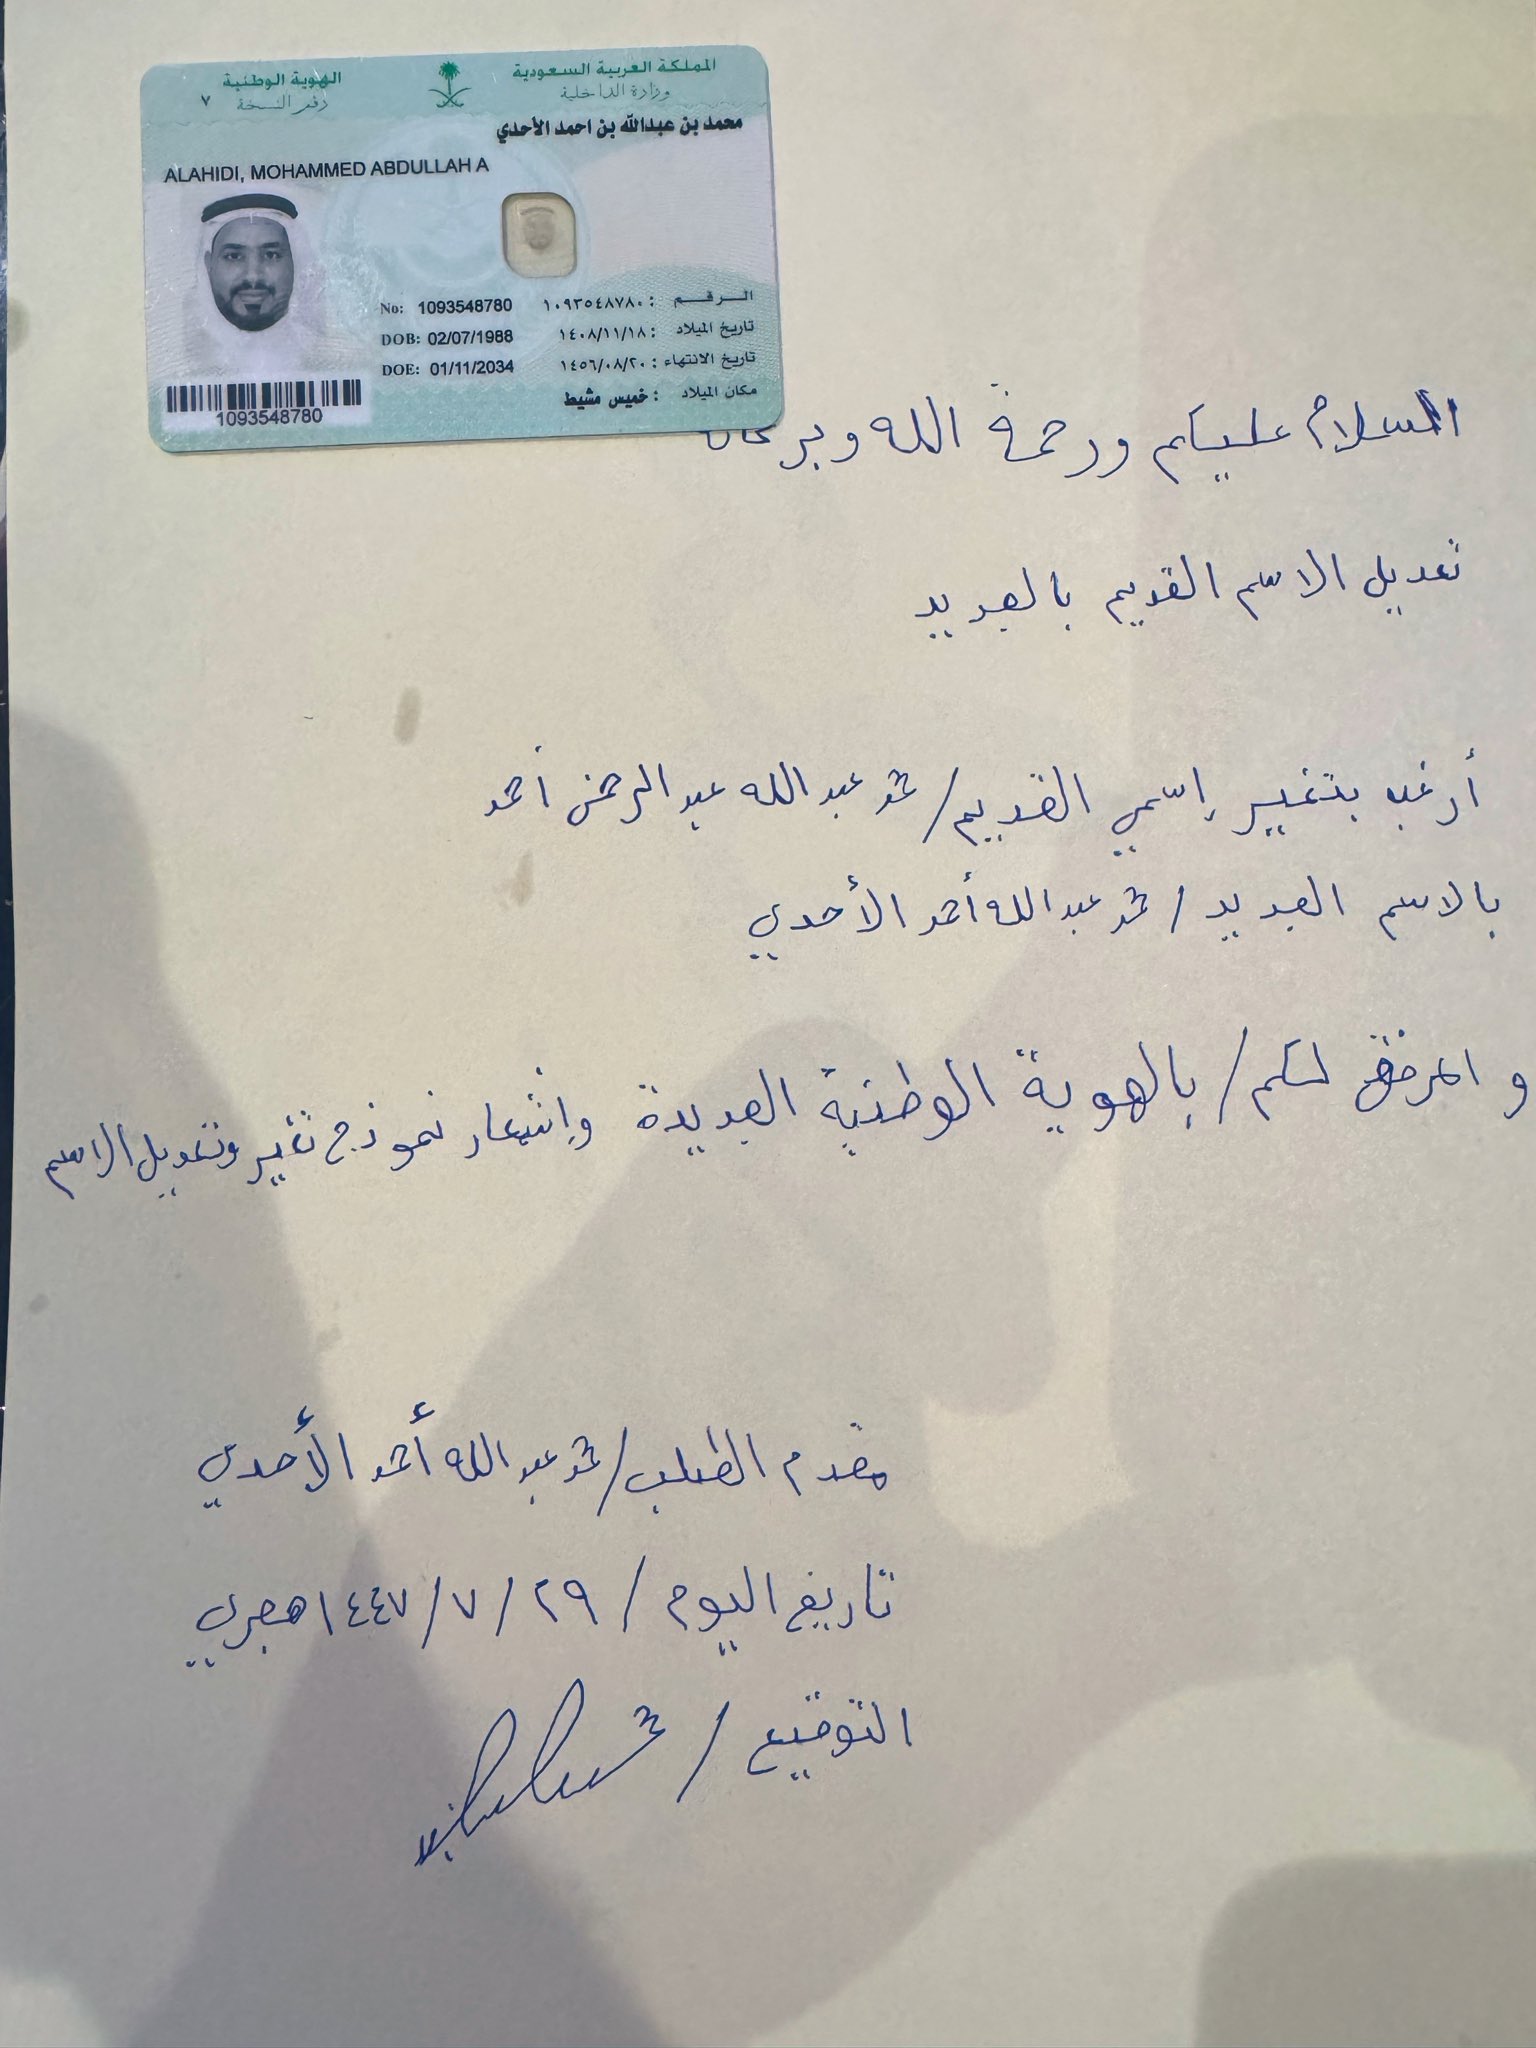 المملكة العربية السعودية
وزارة الداخلية
الهوية الوطنية
رقم النسخة ٧
محمد بن عبدالله بن احمد الأحدي
ALAHIDI, MOHAMMED ABDULLAH A
No: 1093548780 الرقم : ١٠٩٣٥٤٨٧٨٠
DOB: 02/07/1988 تاريخ الميلاد : ١٤٠٨/١١/١٨
DOE: 01/11/2034 تاريخ الانتهاء : ١٤٥٦/٠٨/٢٠
مكان الميلاد : خميس مشيط
1093548780
السلام عليكم ورحمة الله وبركاته
تعديل الاسم القديم بالجديد
أرغب بتغيير إسمي القديم / محمد عبد الله عبد الرحمن أحمد
بالاسم الجديد / محمد عبد الله أحمد الأحدي
والمرفق لكم / بالهوية الوطنية الجديدة وإشعار نموذج تغير وتعديل الاسم
مقدم الطلب / محمد عبد الله أحمد الأحدي
تاريخ اليوم / ٢٩ / ٧ / ١٤٤٧ هجري
التوقيع /